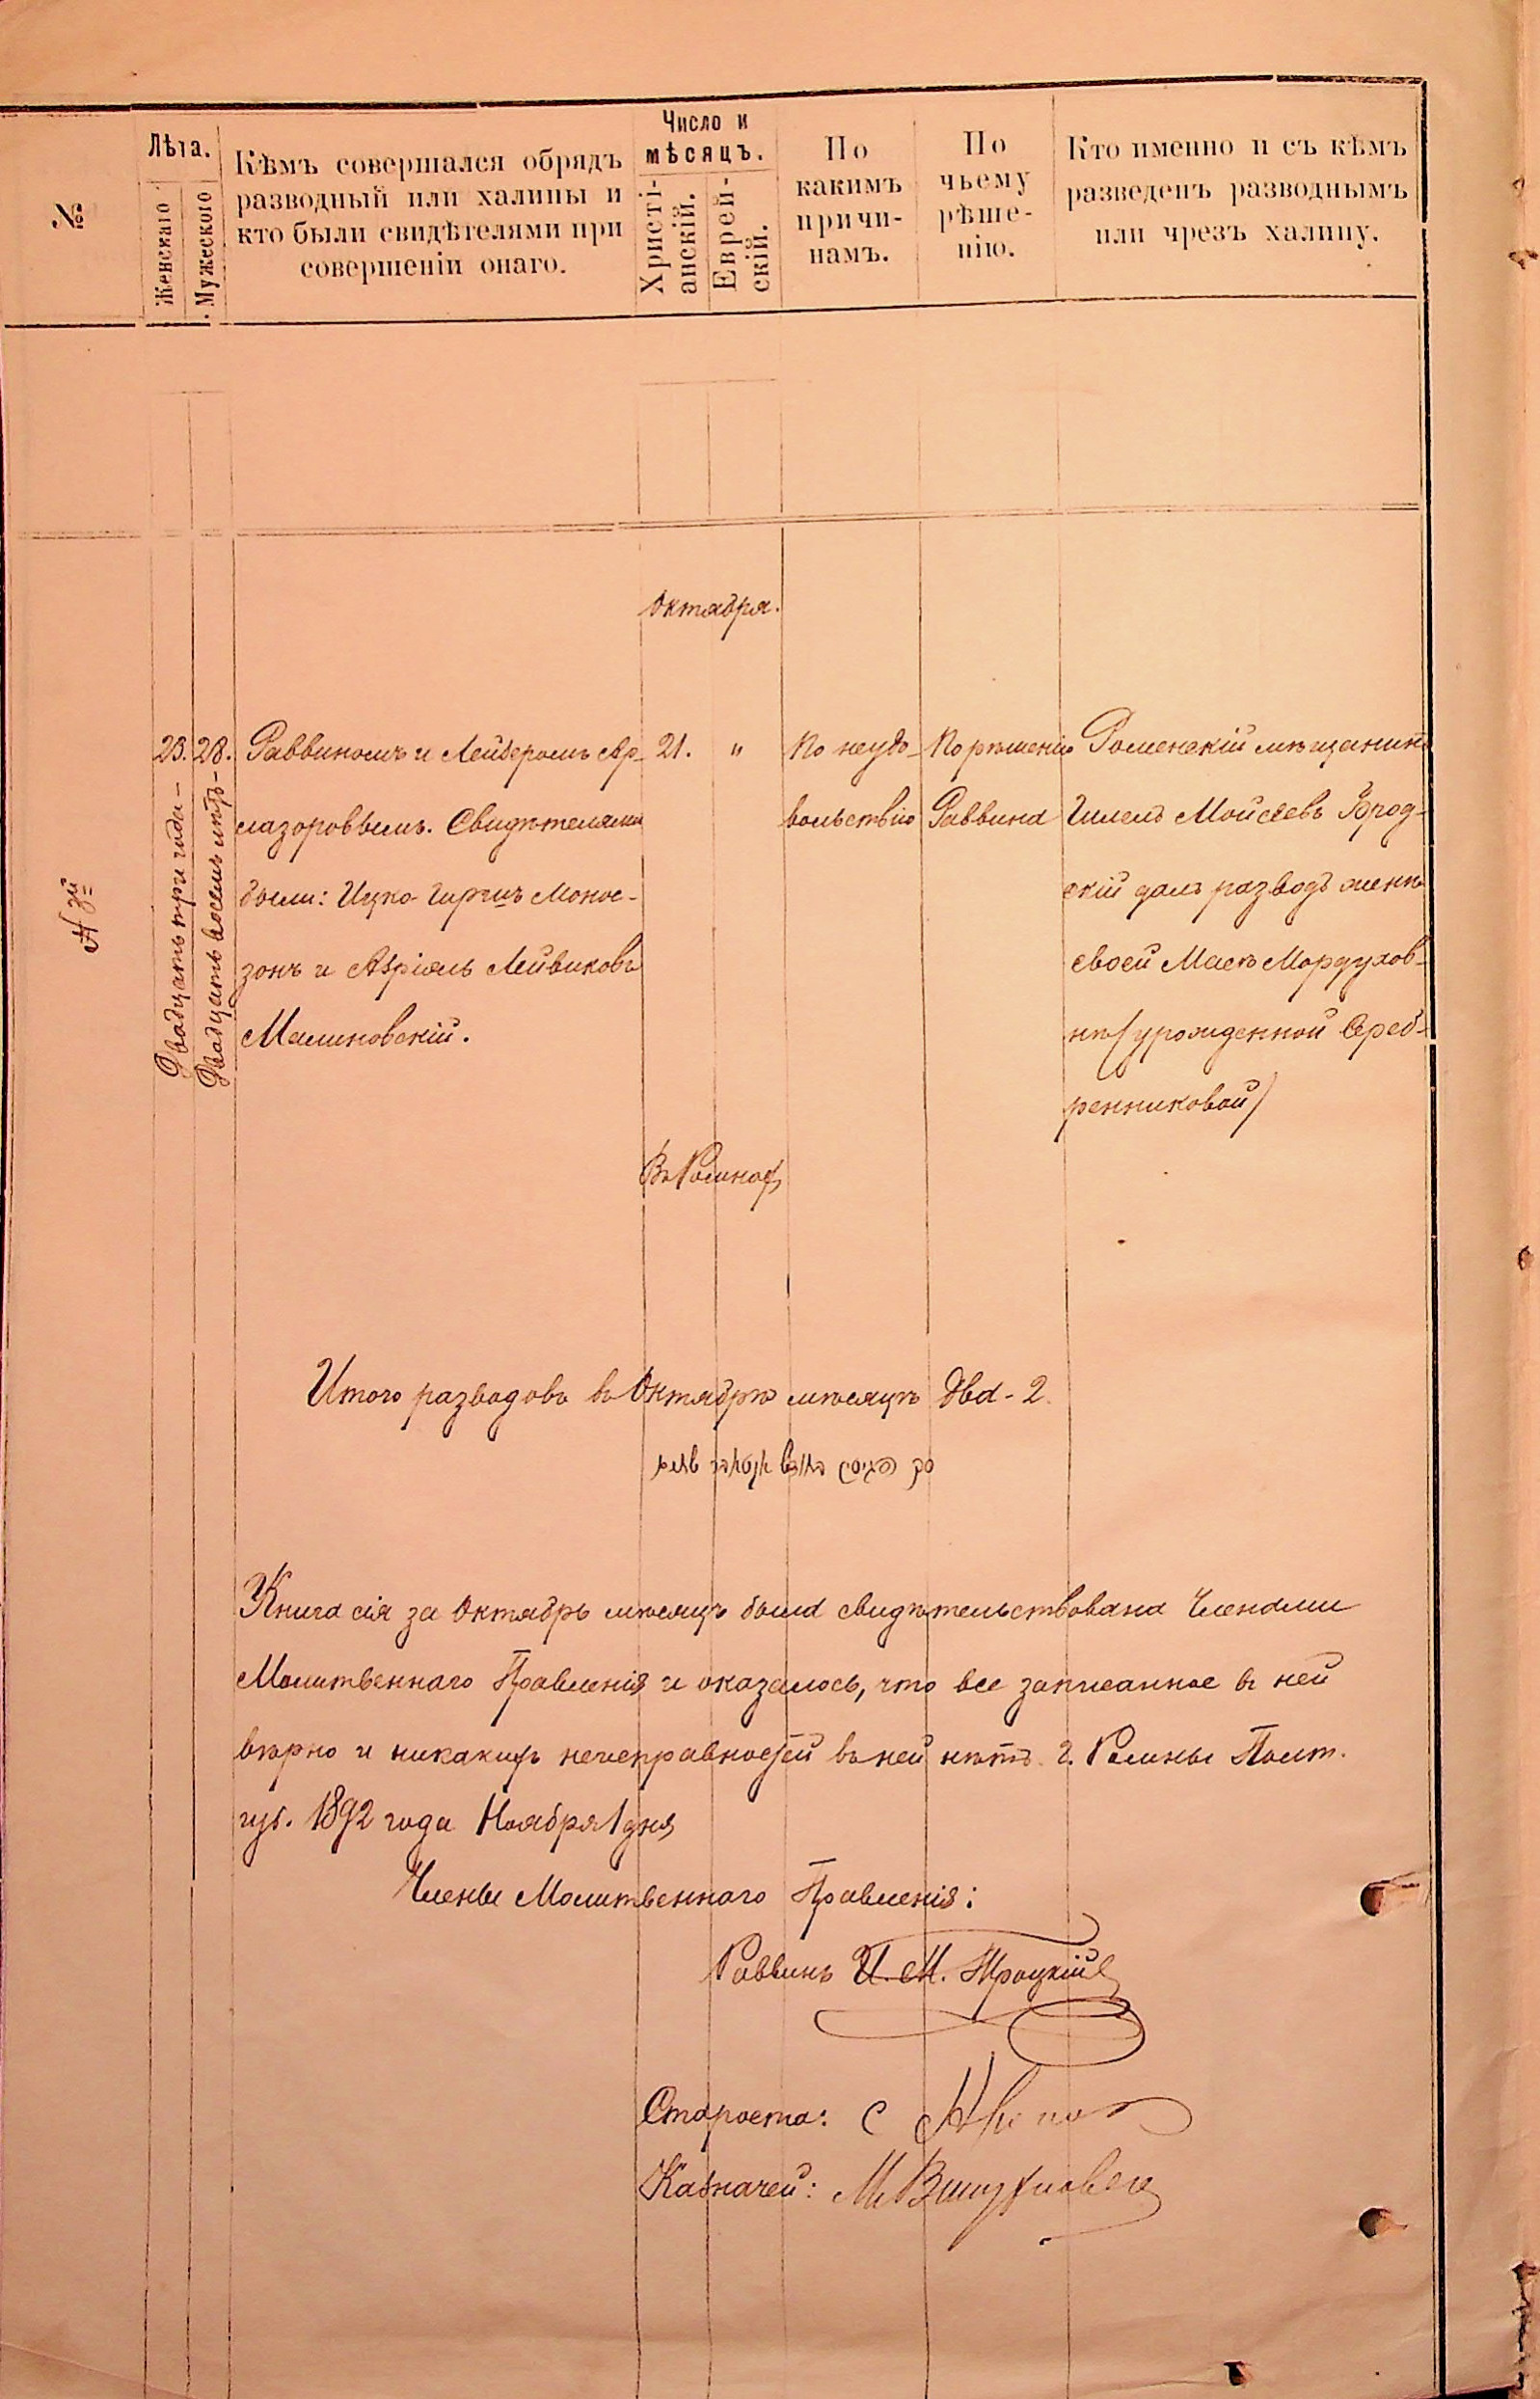 №
Лѣта.
Женскаго
Мужескаго
Кѣмъ совершался обрядъ
разводный или халицы и
кто были свидѣтелями при
совершеніи онаго.
Число и
мѣсяцъ.
Христі-
анскій.
Еврей-
скій.
По
какимъ
причи-
намъ.
По
чьему
рѣше-
нію.
Кто именно и съ кѣмъ
разведенъ разводнымъ
или чрезъ халицу.
Октября.
23.
Двадцать три года -
28.
Двадцать восемь лѣтъ -
Раввиномъ и Лейберомъ
Свидѣтелями
были: Ицко- Гиршъ Монос-
зонъ и Лейвиковъ
Малиновскій.
21. "
По неудо-
вольствію
По рѣшенію
Раввина
Роменскій мѣщанинъ
Гилель Мойсеевъ Город-
скій далъ разводъ женѣ
своей Мордухов-
нѣ (урожденной Сереб-
ренниковой)
Въ Ромнахъ
Итого разводовъ въ Октябрѣ мѣсяцѣ два - 2.
Книга сія за Октябрь мѣсяцъ была свидѣтельствована Членами
Молитвеннаго Правленія и оказалось, что все записанное въ ней
вѣрно и никакихъ неисправностей въ ней нѣтъ. г. Ромны Полт.
губ. 1892 года Ноября 1 дня
Члены Молитвеннаго Правленія:
Раввинъ И. М. Троцкій
Староста: С
Казначей: М